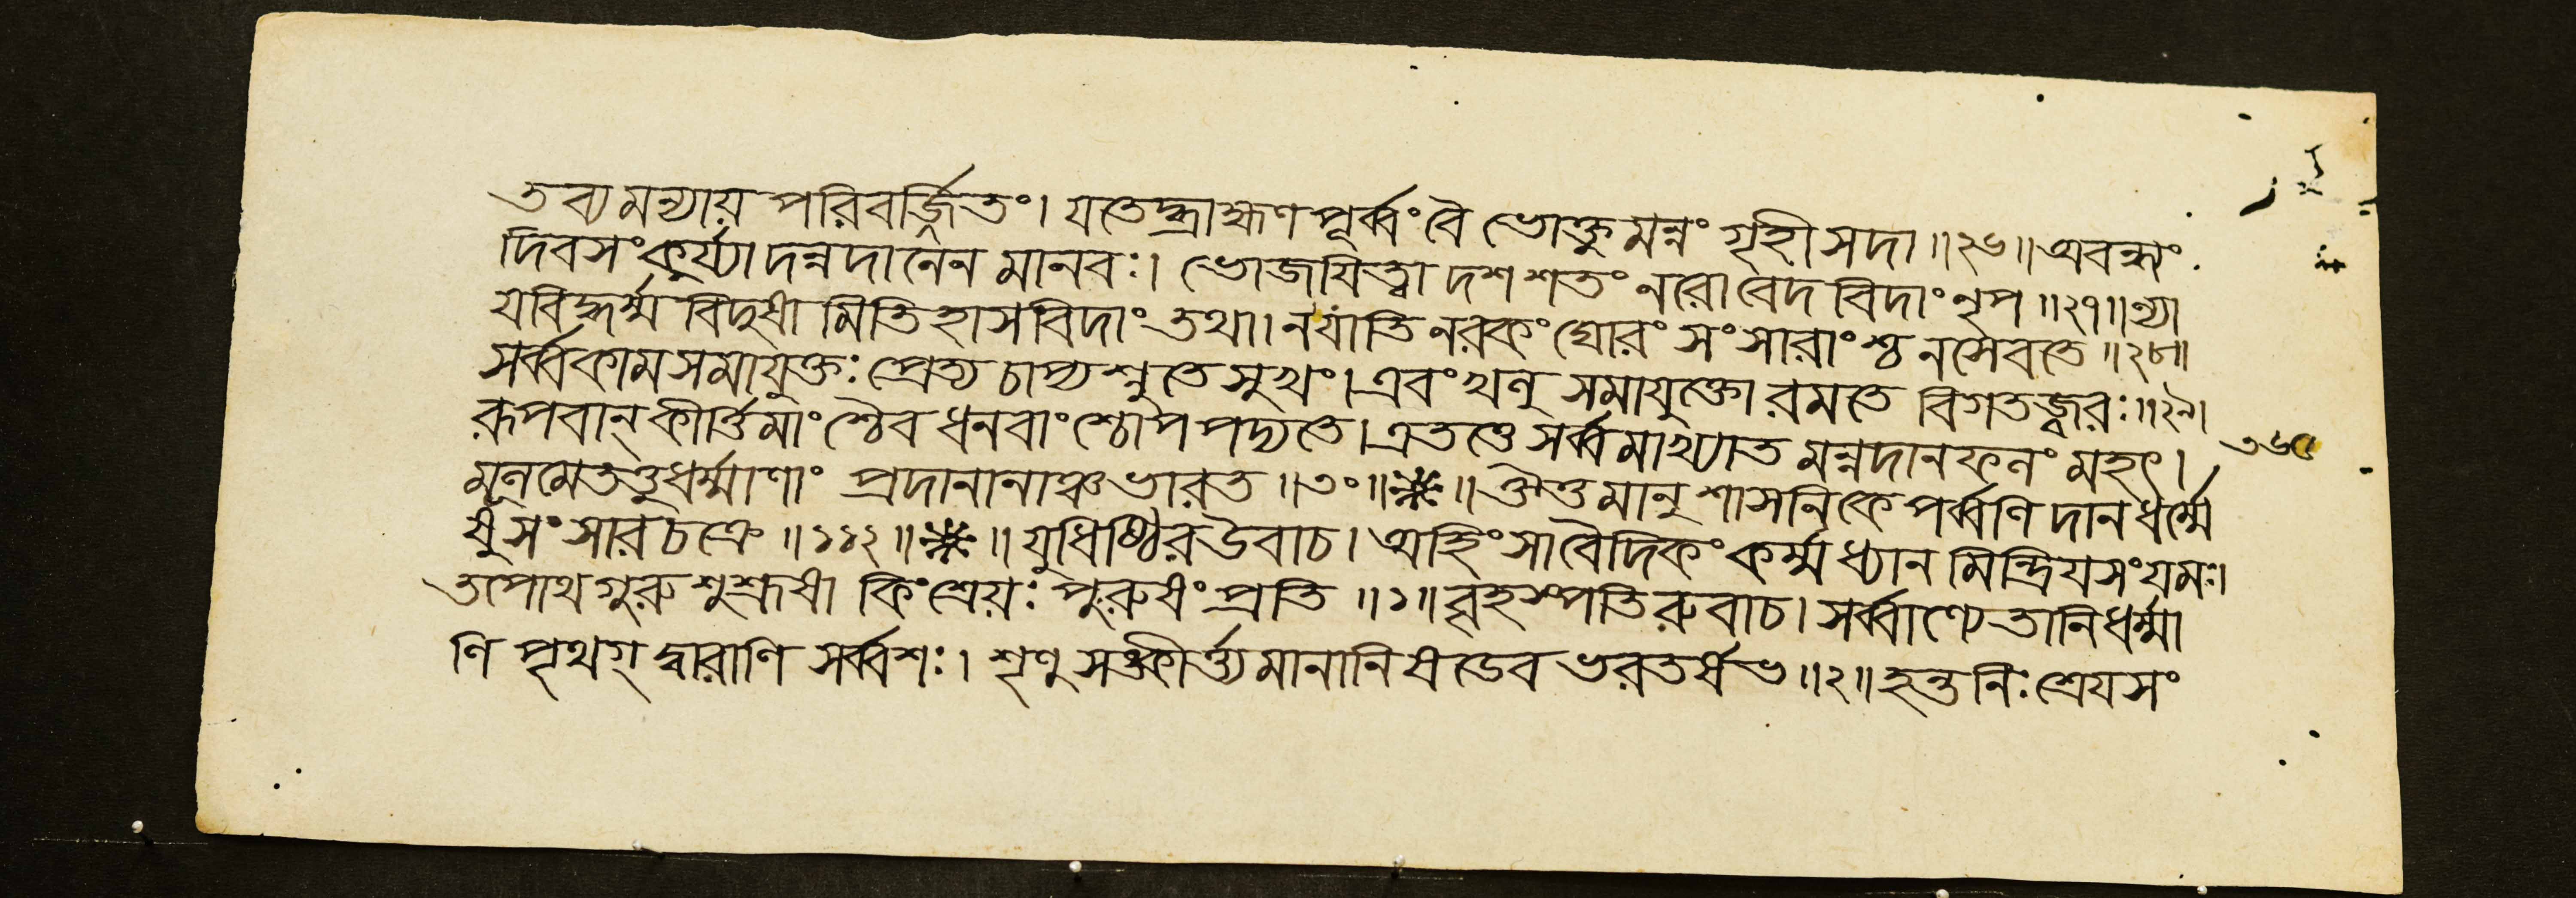 তব্যমন্যায়পরিবর্জ্জিতং। যতেদ্ব্রাহ্মণপূর্ব্বংবৈ ভোক্তুমন্নংগৃহীসদা॥২৬॥অবন্ধ্যং
দিবসংকুর্য্যাদন্নদানেন মানবঃ। ভোজয়িত্বা দশশতং নরোবেদবিদাংনৃপ॥২৭॥ন্যা
যবিদ্ধর্ম্মবিদুষামিতিহাসবিদাং তথা। নযাতি নরকংঘোরং সংসারাংশ্চনসেবতে॥২৮॥
সর্ব্বকামসমাযুক্তঃ প্রেত্যচাপ্যশ্নুতেসুখং। এবংখলু সমাযুক্তোরমতে বিগতজ্বরঃ॥২৯।
রূপবান্কীর্ত্তিমাংশ্চৈব ধনবাংশ্চোপপদ্যতে। এতত্তেসর্ব্বমাখ্যাতমন্নদানফলংমহৎ। ৩৬৫
মূলমেতত্তুধর্ম্মাণাং প্রদানানাঞ্চভারত॥৩০॥※॥ঔত্তমানুশাসনিকেপর্ব্বণিদানধর্ম্মে
ষুসংসারচক্রে॥১১২॥※॥যুধিষ্ঠিরউবাচ। অহিংসাবৈদিকংকর্ম্মধ্যানমিন্দ্রিযসংযমঃ।
তপোথগুরুশুশ্রূষা কিংশ্রেয়ঃ পুরুষংপ্রতি॥১॥বৃহস্পতিরুবাচ। সর্ব্বাণ্যেতানিধর্ম্মা
ণি পৃথগ্দ্বারাণি সর্ব্বশঃ। শৃণুসঙ্কীর্ত্ত্যমানানি ষডেব ভরতর্ষভ॥২॥হন্তনিঃশ্রেযসং